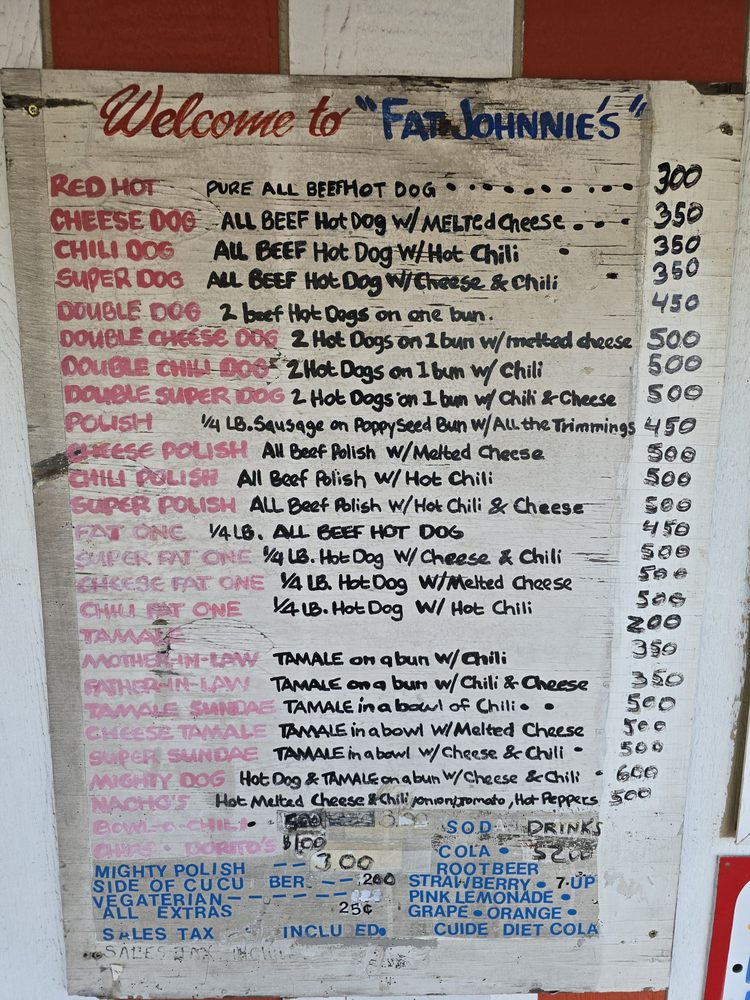 Welcome to "FAT JOHNNIE'S"
RED HOT PURE ALL BEEF HOT DOG • • • • • • • • • 300
CHEESE DOG ALL BEEF Hot Dog W/ MELTed Cheese • • • 350
CHILI DOG ALL BEEF Hot Dog W/ Hot Chili • 350
SUPER DOG ALL BEEF Hot Dog W/ Cheese & Chili • 350
DOUBLE DOG 2 beef Hot Dogs on one bun. 450
DOUBLE CHEESE DOG 2 Hot Dogs on 1 bun w/ melted cheese 500
DOUBLE CHILI DOG 2 Hot Dogs on 1 bun w/ Chili 500
DOUBLE SUPER DOG 2 Hot Dogs on 1 bun w/ Chili & Cheese 500
POLISH 1/4 LB. Sausage on Poppy Seed Bun W/ All the Trimmings 450
CHEESE POLISH All Beef Polish W/ Melted Cheese 500
CHILI POLISH All Beef Polish W/ Hot Chili 500
SUPER POLISH ALL Beef Polish W/ Hot Chili & Cheese 500
FAT ONE 1/4 LB. ALL BEEF HOT DOG 450
SUPER FAT ONE 1/4 LB. Hot Dog W/ Cheese & Chili 500
CHEESE FAT ONE 1/4 LB. Hot Dog W/ Melted Cheese 500
CHILI FAT ONE 1/4 LB. Hot Dog W/ Hot Chili 500
TAMALE 200
MOTHER-IN-LAW TAMALE on a bun W/ Chili 350
FATHER-IN-LAW TAMALE on a bun w/ Chili & Cheese 350
TAMALE SUNDAE TAMALE in a bowl of Chili • • 500
CHEESE TAMALE TAMALE in a bowl W/ Melted Cheese 500
SUPER SUNDAE TAMALE in a bowl W/ Cheese & Chili • 500
MIGHTY DOG Hot Dog & TAMALE on a bun W/ Cheese & Chili • 600
NACHO'S Hot Melted Cheese & Chili, onion, tomato, Hot Peppers 500
BOWL-O-CHILI • 500
CHIPS • DORITO'S $100
MIGHTY POLISH -- 300
SIDE OF CUCU BER -- 200
VEGATERIAN
ALL EXTRAS 25¢
SALES TAX INCLU ED•
SALES TAX
SOD DRINKS
COLA • $200
ROOT BEER
STRAWBERRY • 7-UP
PINK LEMONADE •
GRAPE • ORANGE •
CUIDE DIET COLA